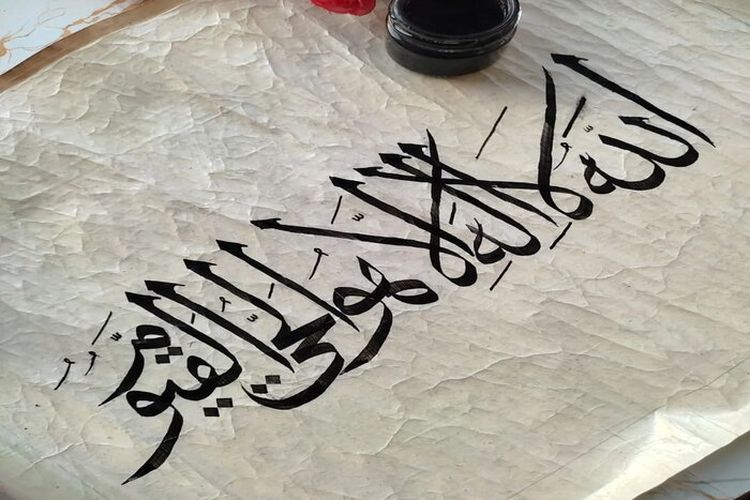 اللّٰهُ لَا إِلٰهَ إِلَّا هُوَ الْحَيُّ الْقَيُّومُ